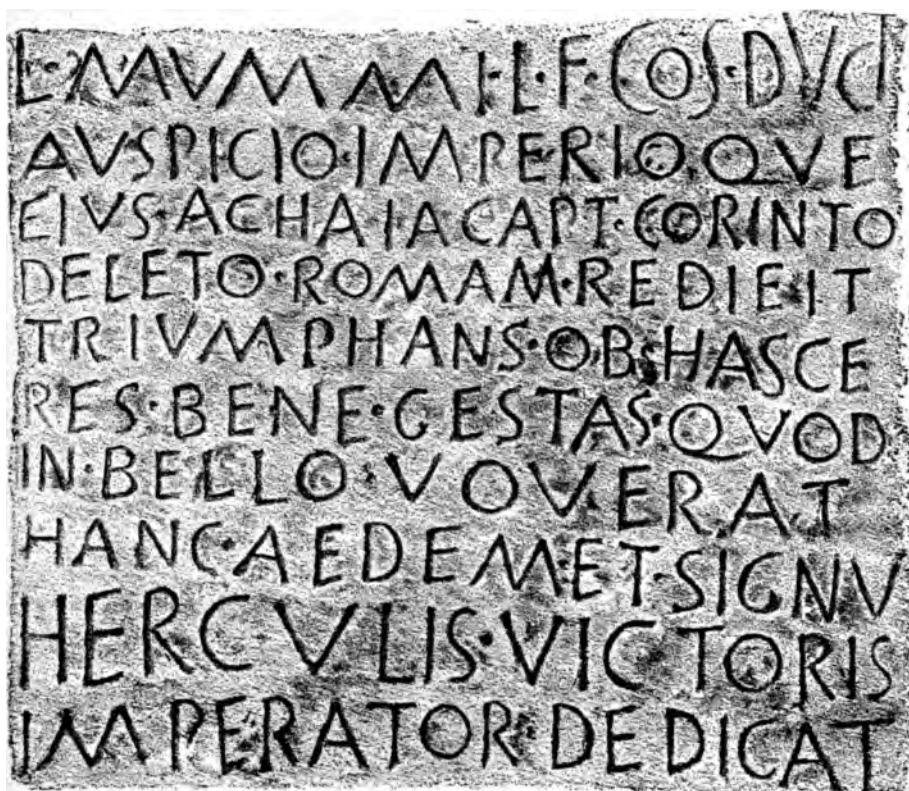 L·MVMMI·L·F·COS·DVCT
AVSPICIO·IMPERIO·QVE
EIVS·ACHAIACAPT·CORINTO
DELETO·ROMAM·REDIEIT
TRIVMPHANS·OB·HASCE
RES·BENE·GESTAS·QVOD
IN·BELLO·VOVERAT
HANC·AEDEMET·SIGNV
HERCVLIS·VICTORIS
IMPERATOR·DEDICAT